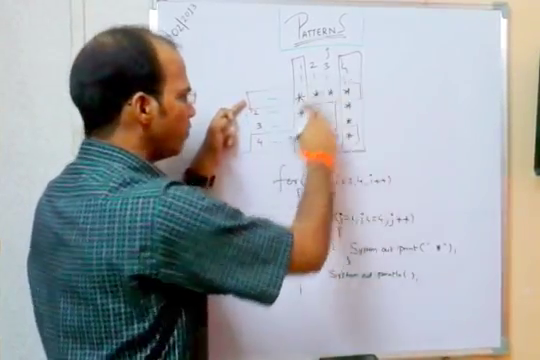 02/2023
PATTERNS
j
1 2 3 4
* * * *
2 *
3 *
4 *
for( i<=4, i++)
(j=1, j<=4, j++)
{
System out print(" * "),
}
System out println(),